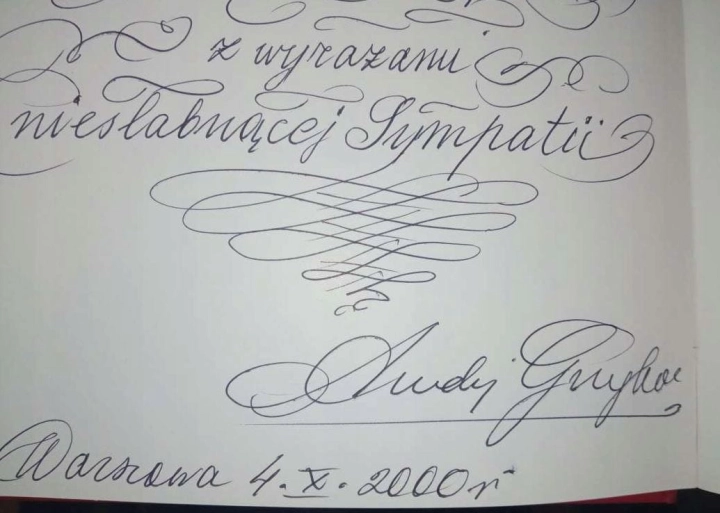 z wyrazami
niesłabnącej Sympatii
Warszawa 4.X.2000r